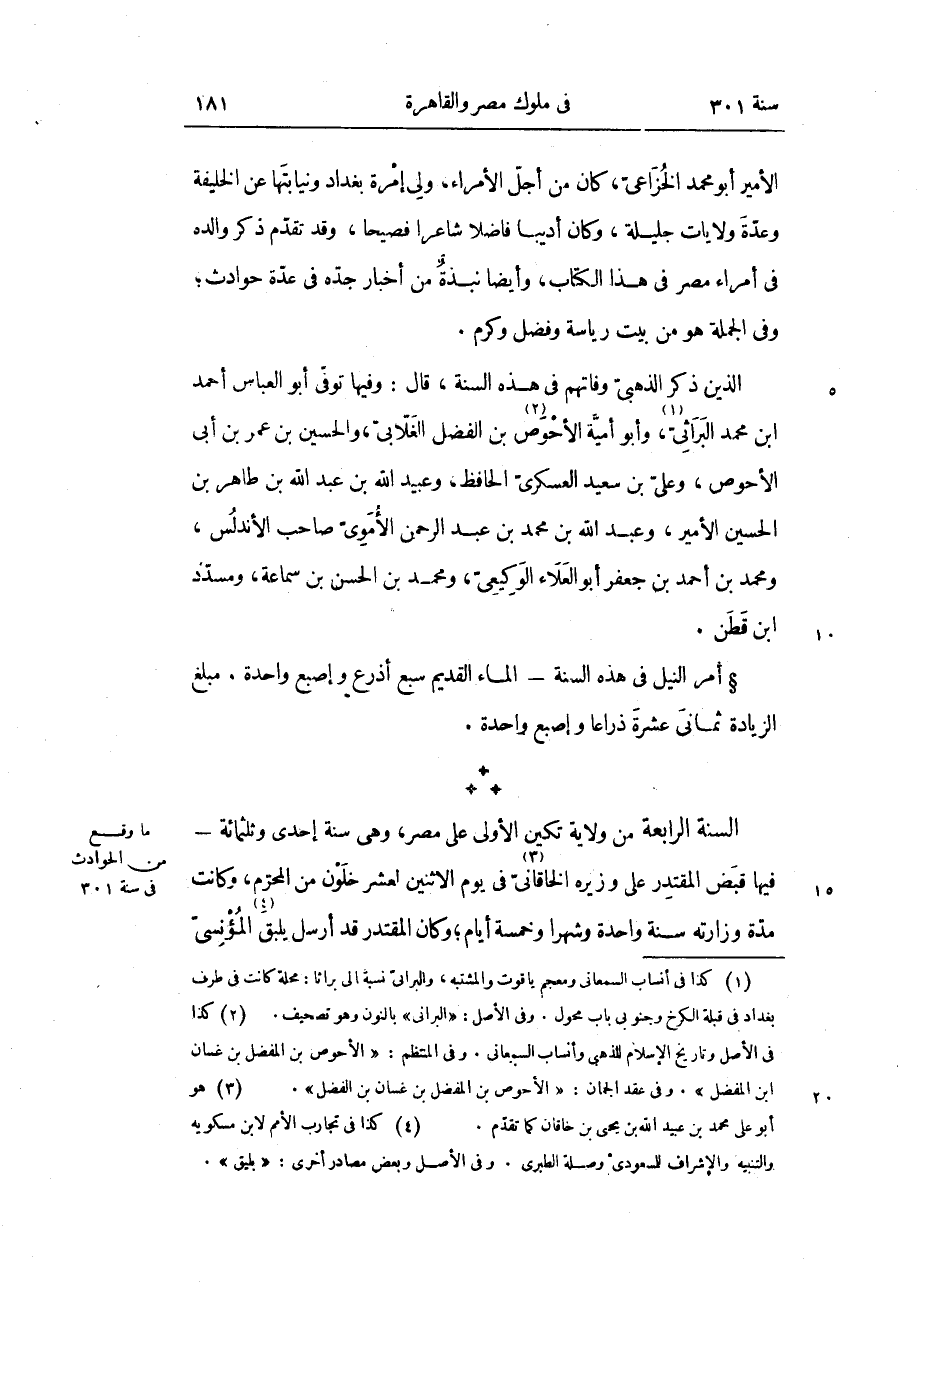 سنة ٣٠١ فى ملوك مصر والقاهرة ١٨١
الأمير أبو محمد الخُزَاعىّ، كان من أجلّ الأمراء، ولى إمْرة بغداد ونيابتَها عن الخليفة
وعدّةَ ولايات جليلة، وكان أديبا فاضلا شاعرا فصيحا، وقد تقدّم ذكر والده
فى أمراء مصر فى هذا الكتاب، وأيضا نبذةٌ من أخبار جدّه فى عدّة حوادث؛
وفى الجملة هو من بيت رياسة وفضل وكرم.
٥ الذين ذكر الذهبىّ وفاتهم فى هذه السنة، قال: وفيها توفّى أبو العباس أحمد
ابن محمد البَرَاثِىّ(١)، وأبو أميَّة الأحْوَص(٢) بن الفضل الغَلّابىّ، والحسين بن عمر بن أبى
الأحوص، وعلىّ بن سعيد العسكرىّ الحافظ، وعبيد الله بن عبد الله بن طاهر بن
الحسين الأمير، وعبد الله بن محمد بن عبد الرحمن الأُمَوِىّ صاحب الأندلُس،
ومحمد بن أحمد بن جعفر أبو العَلَاء الوَكِيعِىّ، ومحمد بن الحسن بن سماعة، ومسدّد
١٠ ابن قَطَن.
§ أمر النيل فى هذه السنة — الماء القديم سبع أذرع وإصبع واحدة. مبلغ
الزيادة ثمانىَ عشرةَ ذراعا وإصبع واحدة.
السنة الرابعة من ولاية تكين الأولى على مصر، وهى سنة إحدى وثلثمائة —
ما وقع
من الحوادث
فى سنة ٣٠١
١٥ فيها قبَض المقتدِر على وزيره الخاقانىّ(٣) فى يوم الاثنين لعشر خلَوْن من المحرّم، وكانت
مدّة وزارته سنة واحدة وشهرا وخمسة أيام؛ وكان المقتدر قد أرسل يلبق(٤) المُؤْنِسىّ
(١) كذا فى أنساب السمعانى ومعجم ياقوت والمشتبه، والبراثىّ نسبة الى براثا: محلة كانت فى طرف
بغداد فى قبلة الكرخ وجنوبى باب محول. وفى الأصل: «البرانى» بالنون وهو تصحيف. (٢) كذا
فى الأصل وتاريخ الإسلام للذهبى وأنساب السمعانى. وفى المنتظم: «الأحوص بن المفضل بن غسان
٢٠ ابن المفضل». وفى عقد الجمان: «الأحوص بن المفضل بن غسان بن الفضل». (٣) هو
أبو على محمد بن عبيد الله بن يحيى بن خاقان كما تقدّم. (٤) كذا فى تجارب الأمم لابن مسكويه
والتنبيه والإشراف للمسعودىّ وصلة الطبرى. وفى الأصل وبعض مصادر أخرى: «بليق».